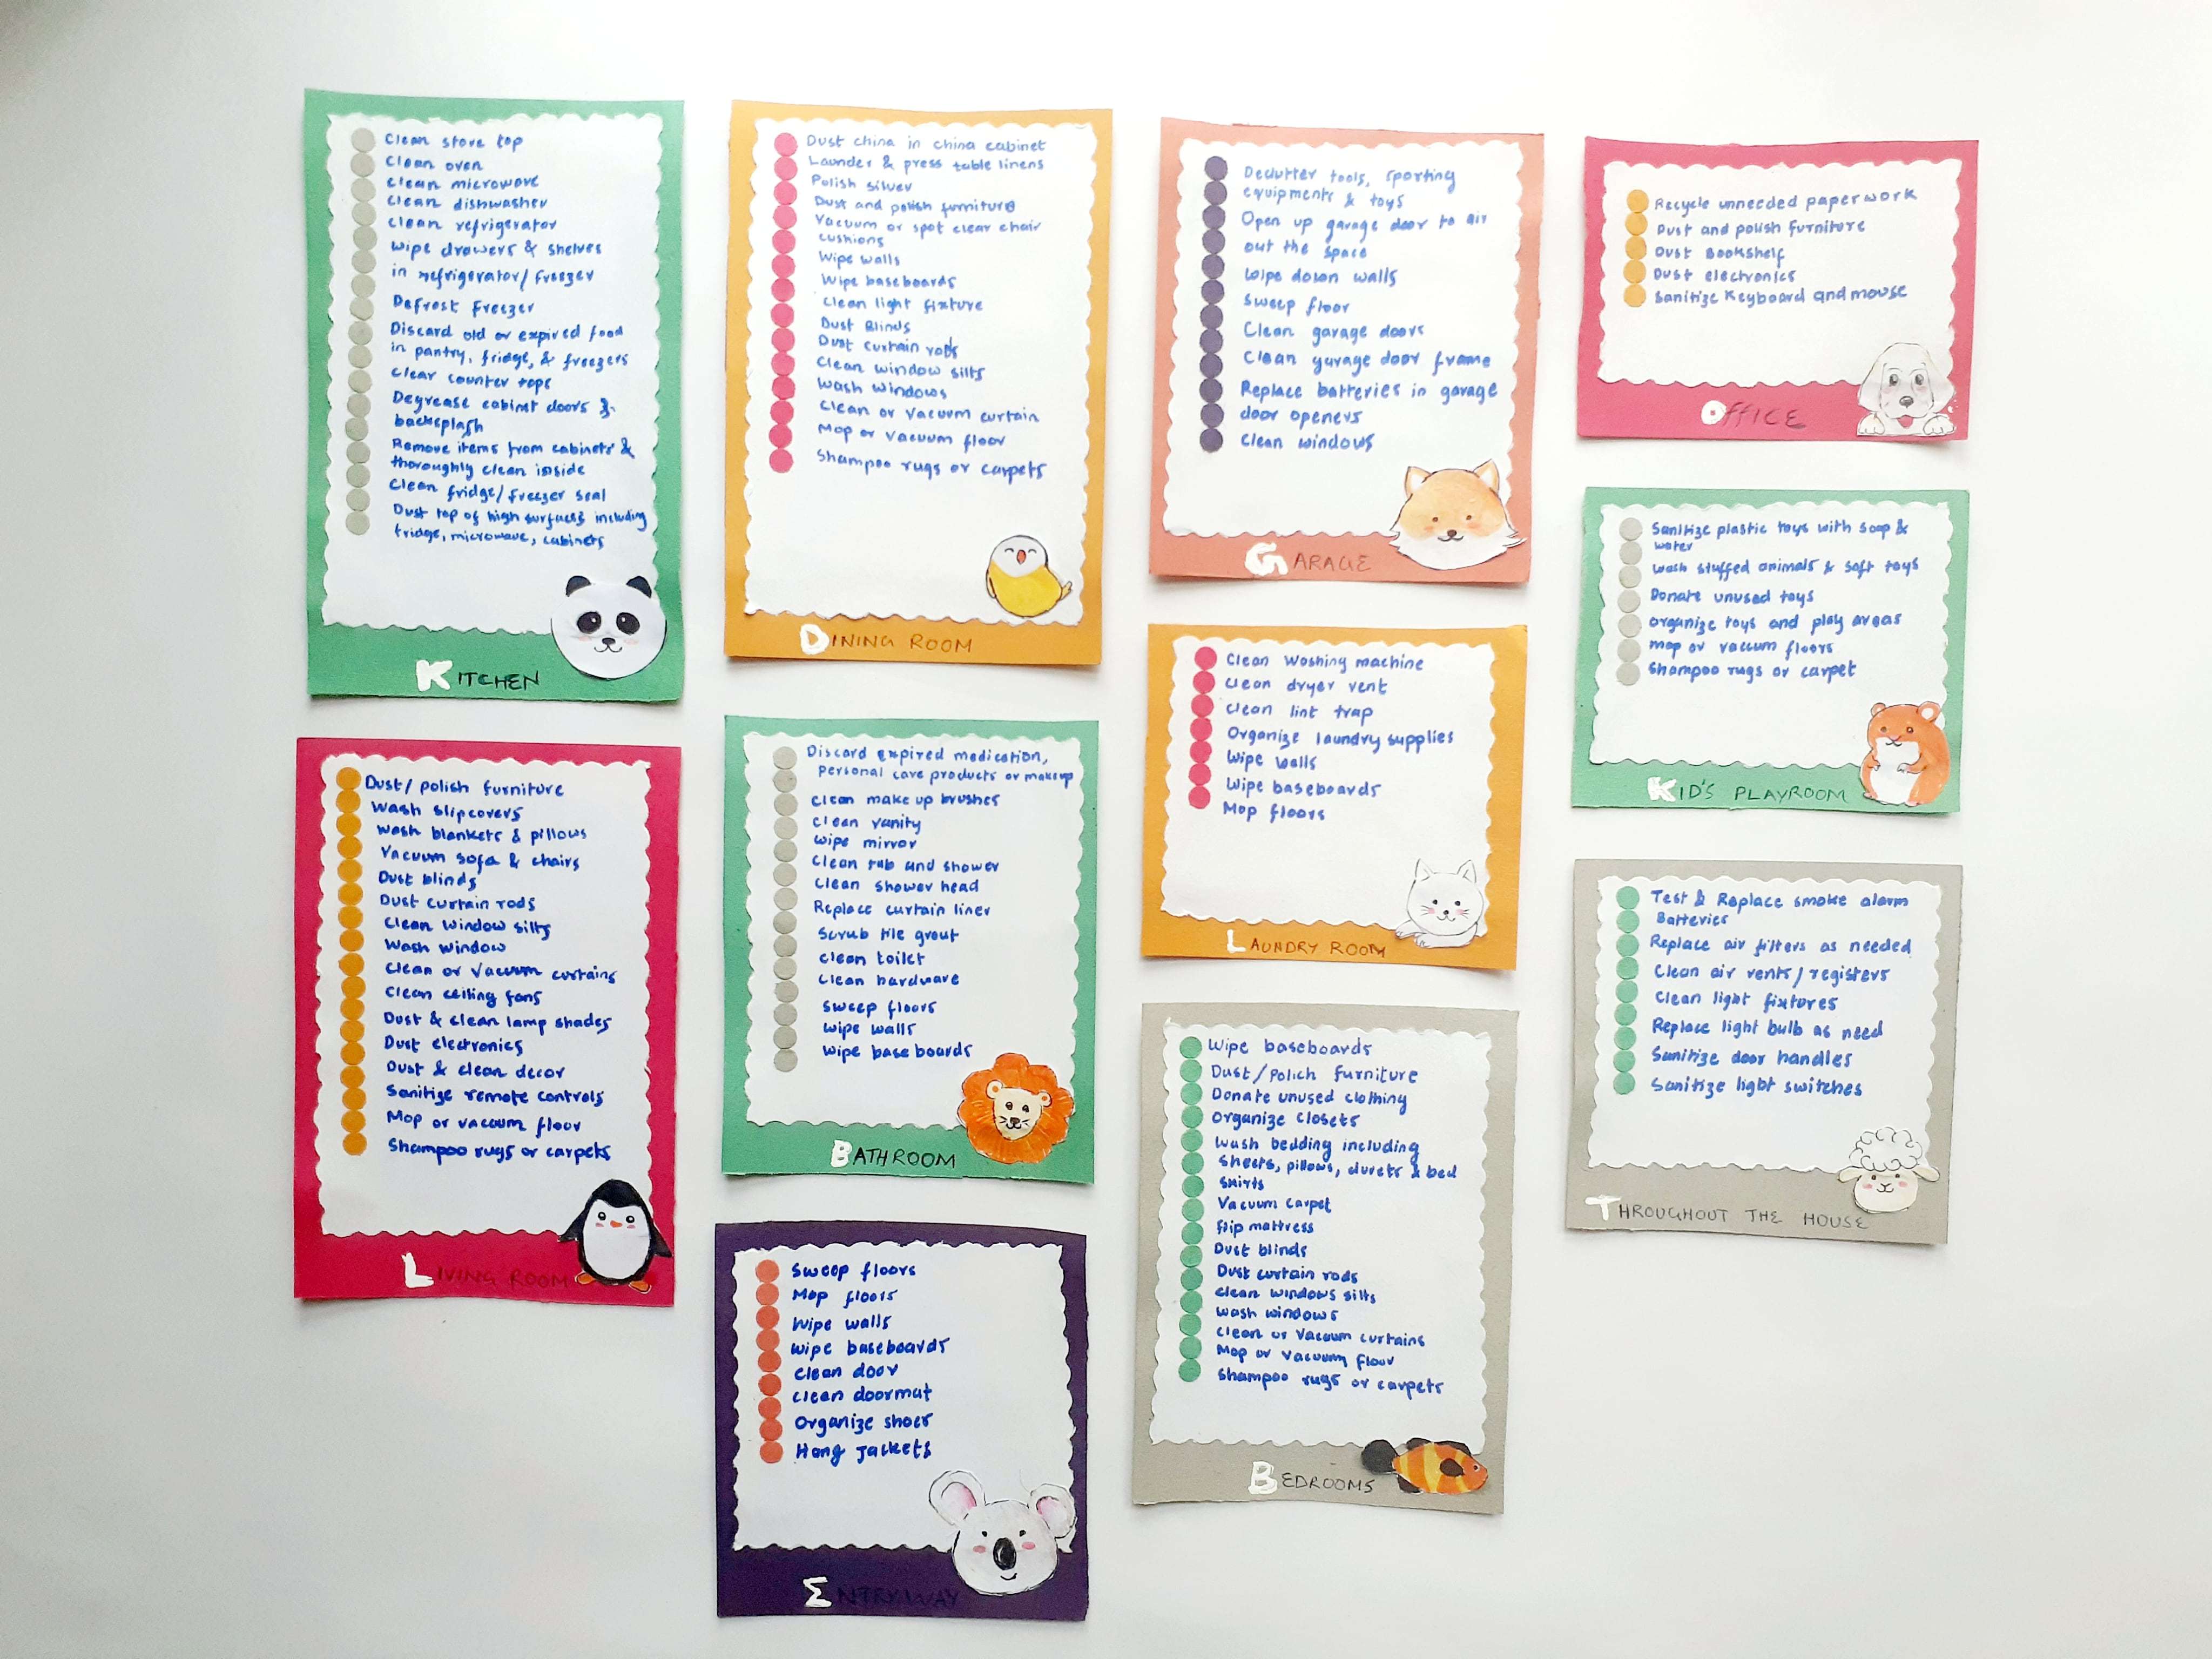 Clean stove top
Clean oven
Clean microwave
Clean dishwasher
Clean refrigerator
Wipe drawers & shelves
in refrigerator/freezer
Defrost Freezer
Discard old or expired food
in pantry, fridge, & freezers
Clear counter tops
Degrease cabinet doors &
backsplash
Remove items from cabinets &
thoroughly clean inside
Clean fridge/freezer seal
Dust top of high surfaces including
fridge, microwave, cabinets
KITCHEN
Dust/polish furniture
Wash slipcovers
Wash blankets & pillows
Vacuum sofa & chairs
Dust blinds
Dust curtain rods
Clean window silts
Wash window
Clean or vacuum curtains
Clean ceiling fans
Dust & clean lamp shades
Dust electronics
Dust & clean decor
Sanitize remote controls
Mop or vacuum floor
Shampoo rugs or carpets
LIVING ROOM
Dust china in china cabinet
Launder & press table linens
Polish silver
Dust and polish furniture
Vacuum or spot clear chair
cushions
Wipe walls
Wipe baseboards
Clean light fixture
Dust Blinds
Dust curtain rods
Clean window silts
Wash windows
Clean or vacuum curtain
Mop or vacuum floor
Shampoo rugs or carpets
DINING ROOM
Discard expired medication,
Personal care products or makeup
Clean make up brushes
Clean vanity
Wipe mirror
Clean tub and shower
Clean shower head
Replace curtain liner
Scrub tile grout
Clean toilet
Clean hardware
Sweep floors
Wipe walls
Wipe baseboards
BATHROOM
Sweep floors
Mop floors
Wipe walls
Wipe baseboards
Clean door
Clean doormat
Organize shoes
Hang Jackets
ENTRYWAY
Declutter tools, sporting
equipments & toys
Open up garage door to air
out the space
Wipe down walls
Sweep floor
Clean garage doors
Clean garage door frame
Replace batteries in garage
door openers
Clean windows
GARAGE
Clean Washing machine
Clean dryer vent
Clean lint trap
Organize laundry supplies
Wipe walls
Wipe baseboards
Mop floors
LAUNDRY ROOM
Wipe baseboards
Dust/Polich furniture
Donate unused clothing
Organize Closets
Wash bedding including
sheets, pillows, duvets & bed
skirts
Vacuum carpet
flip mattress
Dust blinds
Dust curtain rods
Clean windows silts
Wash windows
Clean or vacuum curtains
Mop or vacuum floor
Shampoo rugs or carpets
BEDROOMS
Recycle unneeded paperwork
Dust and polish furniture
Dust Bookshelf
Dust electronics
Sanitize Keyboard and mouse
OFFICE
Sanitize plastic toys with soap &
water
Wash stuffed animals & soft toys
Donate unused toys
organize toys and play areas
mop or vacuum floors
Shampoo rugs or carpet
KID'S PLAYROOM
Test & Replace smoke alarm
Batteries
Replace air filters as needed
Clean air vents/registers
Clean light fixtures
Replace light bulb as need
Sanitize door handles
Sanitize light switches
THROUGHOUT THE HOUSE